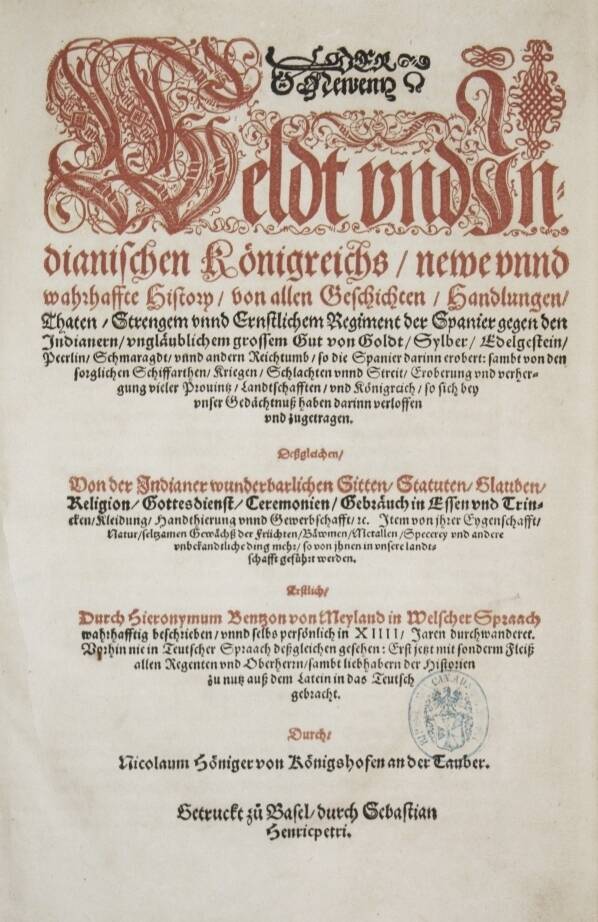 DER
Newenn
Weldt vnd In-
dianischen Königreichs / newe vnnd
wahrhaffte History / von allen Geschichten / Handlungen /
Thaten / Strengem vnnd Ernstlichem Regiment der Spanier gegen den
Indianern / vngläublichem grossem Gut von Goldt / Sylber / Edelgestein /
Peerlin / Schmaragdt / vnnd andern Reichtumb / so die Spanier darinn erobert: sambt von den
sorglichen Schiffarthen / Kriegen / Schlachten vnnd Streit / Eroberung vnd verher-
gung vieler Prouintz / Landtschafften / vnd Königreich / so sich bey
vnser Gedächtnuß haben darinn verloffen
vnd zugetragen.
Deßgleichen /
Von der Indianer wunderbarlichen Sitten / Statuten / Glauben /
Religion / Gottesdienst / Ceremonien / Gebräuch in Essen vnd Trin-
cken / Kleidung / Handthierung vnnd Gewerbschafft / ꝛc. Item von jhrer Eygenschafft /
Natur / seltzamen Gewächß der Früchten / Bäwmen / Metallen / Specerey vnd andere
vnbekandtliche ding mehr / so von jhnen in vnsere landt-
schafft geführt werden.
Erstlich /
Durch Hieronymum Bentzon von Meyland in Welscher Spraach
wahrhafftig beschrieben / vnnd selbs persönlich in XIIII / Jaren durchwanderet.
Vorhin nie in Teutscher Spraach deßgleichen gesehen: Erst jetzt mit sonderm Fleiß
allen Regenten vnd Oberherrn / sambt liebhabern der Historien
zu nutz auß dem Latein in das Teutsch
gebracht.
Durch /
Nicolaum Höniger von Königshofen an der Tauber.
Getruckt zů Basel / durch Sebastian
Henricpetri.